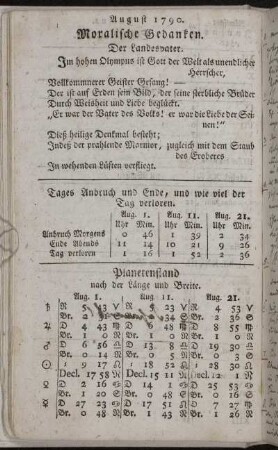 August 1790.
Moralische Gedanken.
Der Landesvater.
Im hohen Olympus ist Gott der Welt als unendlicher
Herrscher,
Vollkommnerer Geister Gesang! —
Der ist auf Erden sein Bild, der seine sterbliche Brüder
Durch Weisheit und Liebe beglückt.
„Er war der Vater des Volks! er war die Liebe der Sei-
nen!“
Dieß heilige Denkmal besteht;
Indeß der prahlende Marmor, zugleich mit dem Staub
des Eroberers
In wehenden Lüften verfliegt.
Tages Anbruch und Ende, und wie viel der
Tag verloren.
Aug. 1. Aug. 11. Aug. 21.
Uhr Min. Uhr Min. Uhr Min.
Anbruch Morgens 0 46 1 39 2 34
Ende Abends 11 14 10 21 9 26
Tag verloren 1 16 1 52 2 36
Planetenstand
nach der Länge und Breite.
Aug. 1. Aug. 11. Aug. 21.
♄ R 5 53 ♈ R 5 23 ♈ R 4 53 ♈
Br. 2 34 S Br. 2 36 S
♃ D 4 43 ♍ D 6 48 ♍ D 8 55 ♍
Br. 0 Br. 0 Br. 0
♂ D 6 56 ♎ D 13 8 ♎ D 19 30 ♎
Br. 0 14 N Br. 0 5 N Br. 0 4 S
☉ D 17 ♌ D 18 52 ♌ D 28 30 ♌
Decl. 17 58 N Decl. 15 11 N Decl. 12 1 N
♀ D 2 16 ♋ D 14 1 ♋ D 25 53 ♋
Br. 0 48 S Br. 0 10 S Br. 0 26 N
☿ D 27 23 ♌ D 17 51 ♍ D 7 27 ♍
Br. 0 48 N Br. 1 43 N Br. 1 26 N